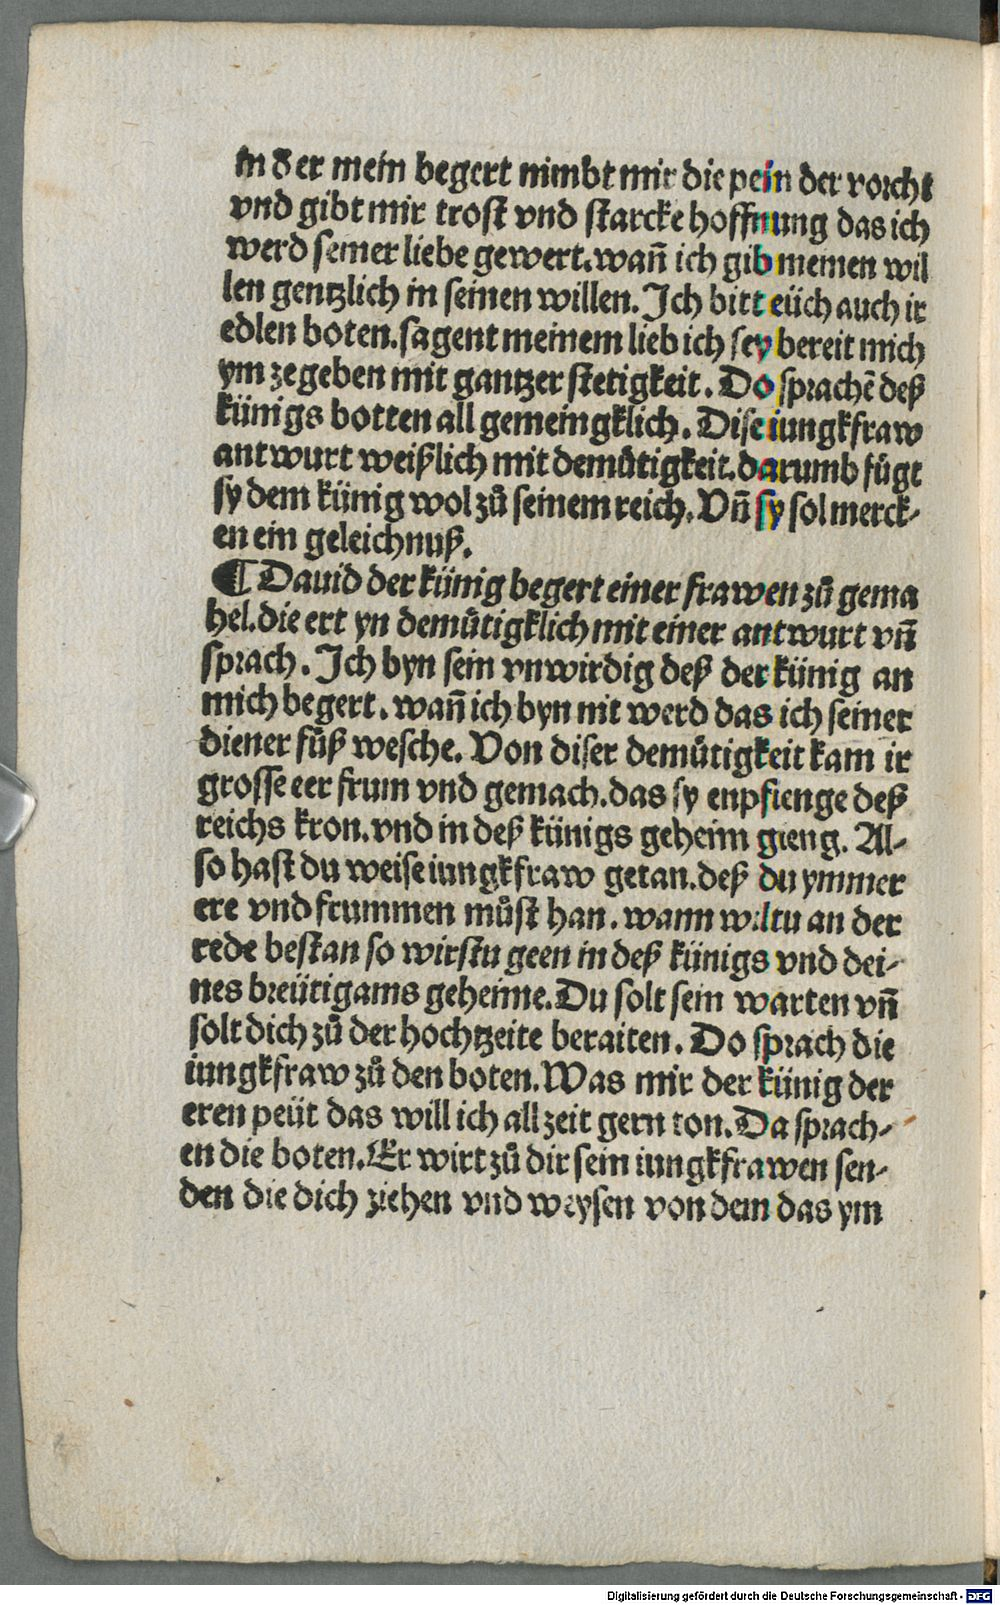 in d er mein begert nimbt mir die pein der vorcht
vnd gibt mir trost vnd starcke hoffnung das ich
werd seiner liebe gewert. wañ ich gib meinen wil
len gentzlich in seinen willen. Ich bitt eüch auch ir
edlen boten. sagent meinem lieb ich sey bereit mich
ym zegeben mit gantzer stetigkeit. Do sprachẽ deß
künigs botten all gemeingklich. Dise iungkfraw
antwurt weißlich mit demůtigkeit. darumb fůgt
sy dem künig wol zů seinem reich. Vñ sy sol merck-
en ein geleichnuß.
¶ Dauid der künig begert einer frawen zů gema
hel. die ert yn demůtigklich mit einer antwurt vñ
sprach. Ich byn sein vnwirdig deß der künig an
mich begert. wañ ich byn nit werd das ich seiner
diener fůß wesche. Von diser demůtigkeit kam ir
grosse eer frum vnd gemach. das sy enpfienge deß
reichs kron. vnd in deß künigs geheim gieng. Al-
so hast du weise iungkfraw getan. deß du ymmer
ere vnd frummen můst han. wann wiltu an der
rede bestan so wirstu geen in deß künigs vnd dei-
nes breütigams geheime. Du solt sein warten vñ
solt dich zů der hochtzeite beraiten. Do sprach die
iungkfraw zů den boten. Was mir der künig der
eren peüt das will ich all zeit gern ton. Da sprach-
en die boten. Er wirt zů dir sein iungkfrawen sen-
den die dich ziehen vnd weysen von dem das ym
Digitalisierung gefördert durch die Deutsche Forschungsgemeinschaft - DFG